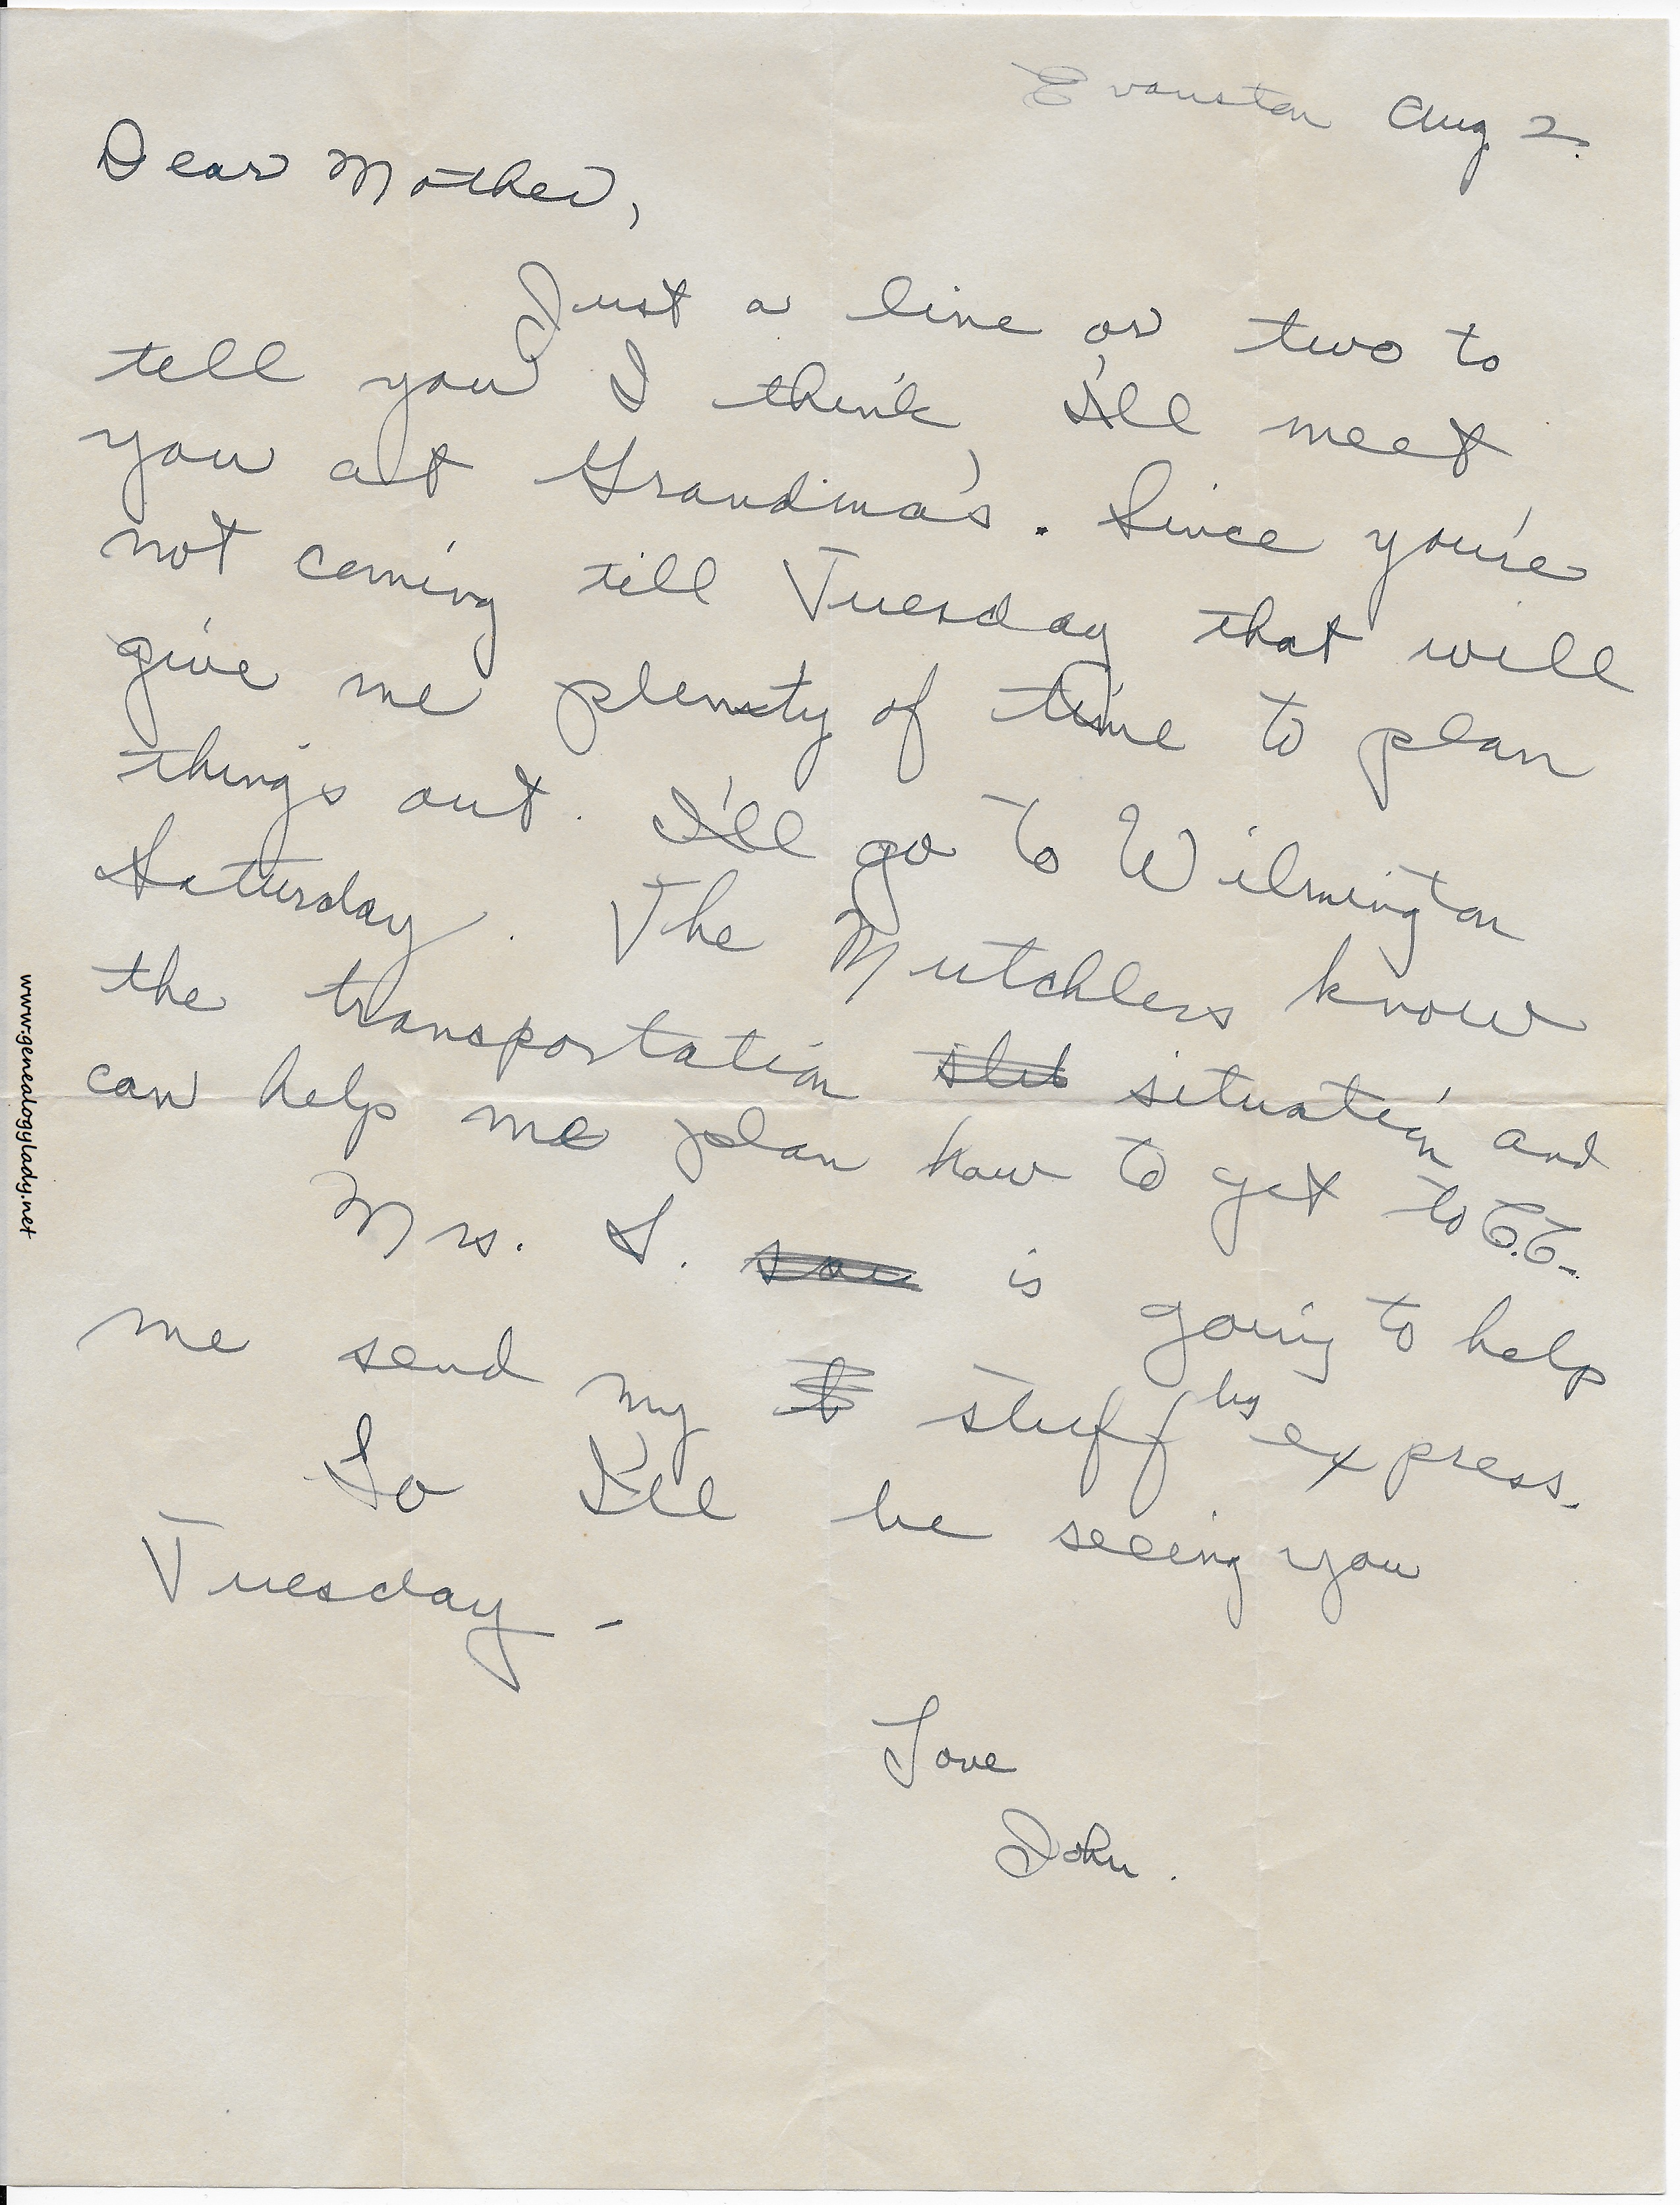 Evanston Aug 2.
Dear Mother,
Just a line or two to
tell you I think I'll meet
you at Grandma's. Since you're
not coming till Tuesday that will
give me plenty of time to plan
things out. I'll go to Wilmington
Saturday. The Mutchlers know
the transportation situation and
can help me plan how to get to C.C.
Mrs. S. is going to help
me send my stuff by express.
So I'll be seeing you
Tuesday -
Love
John.
www.genealogylady.net